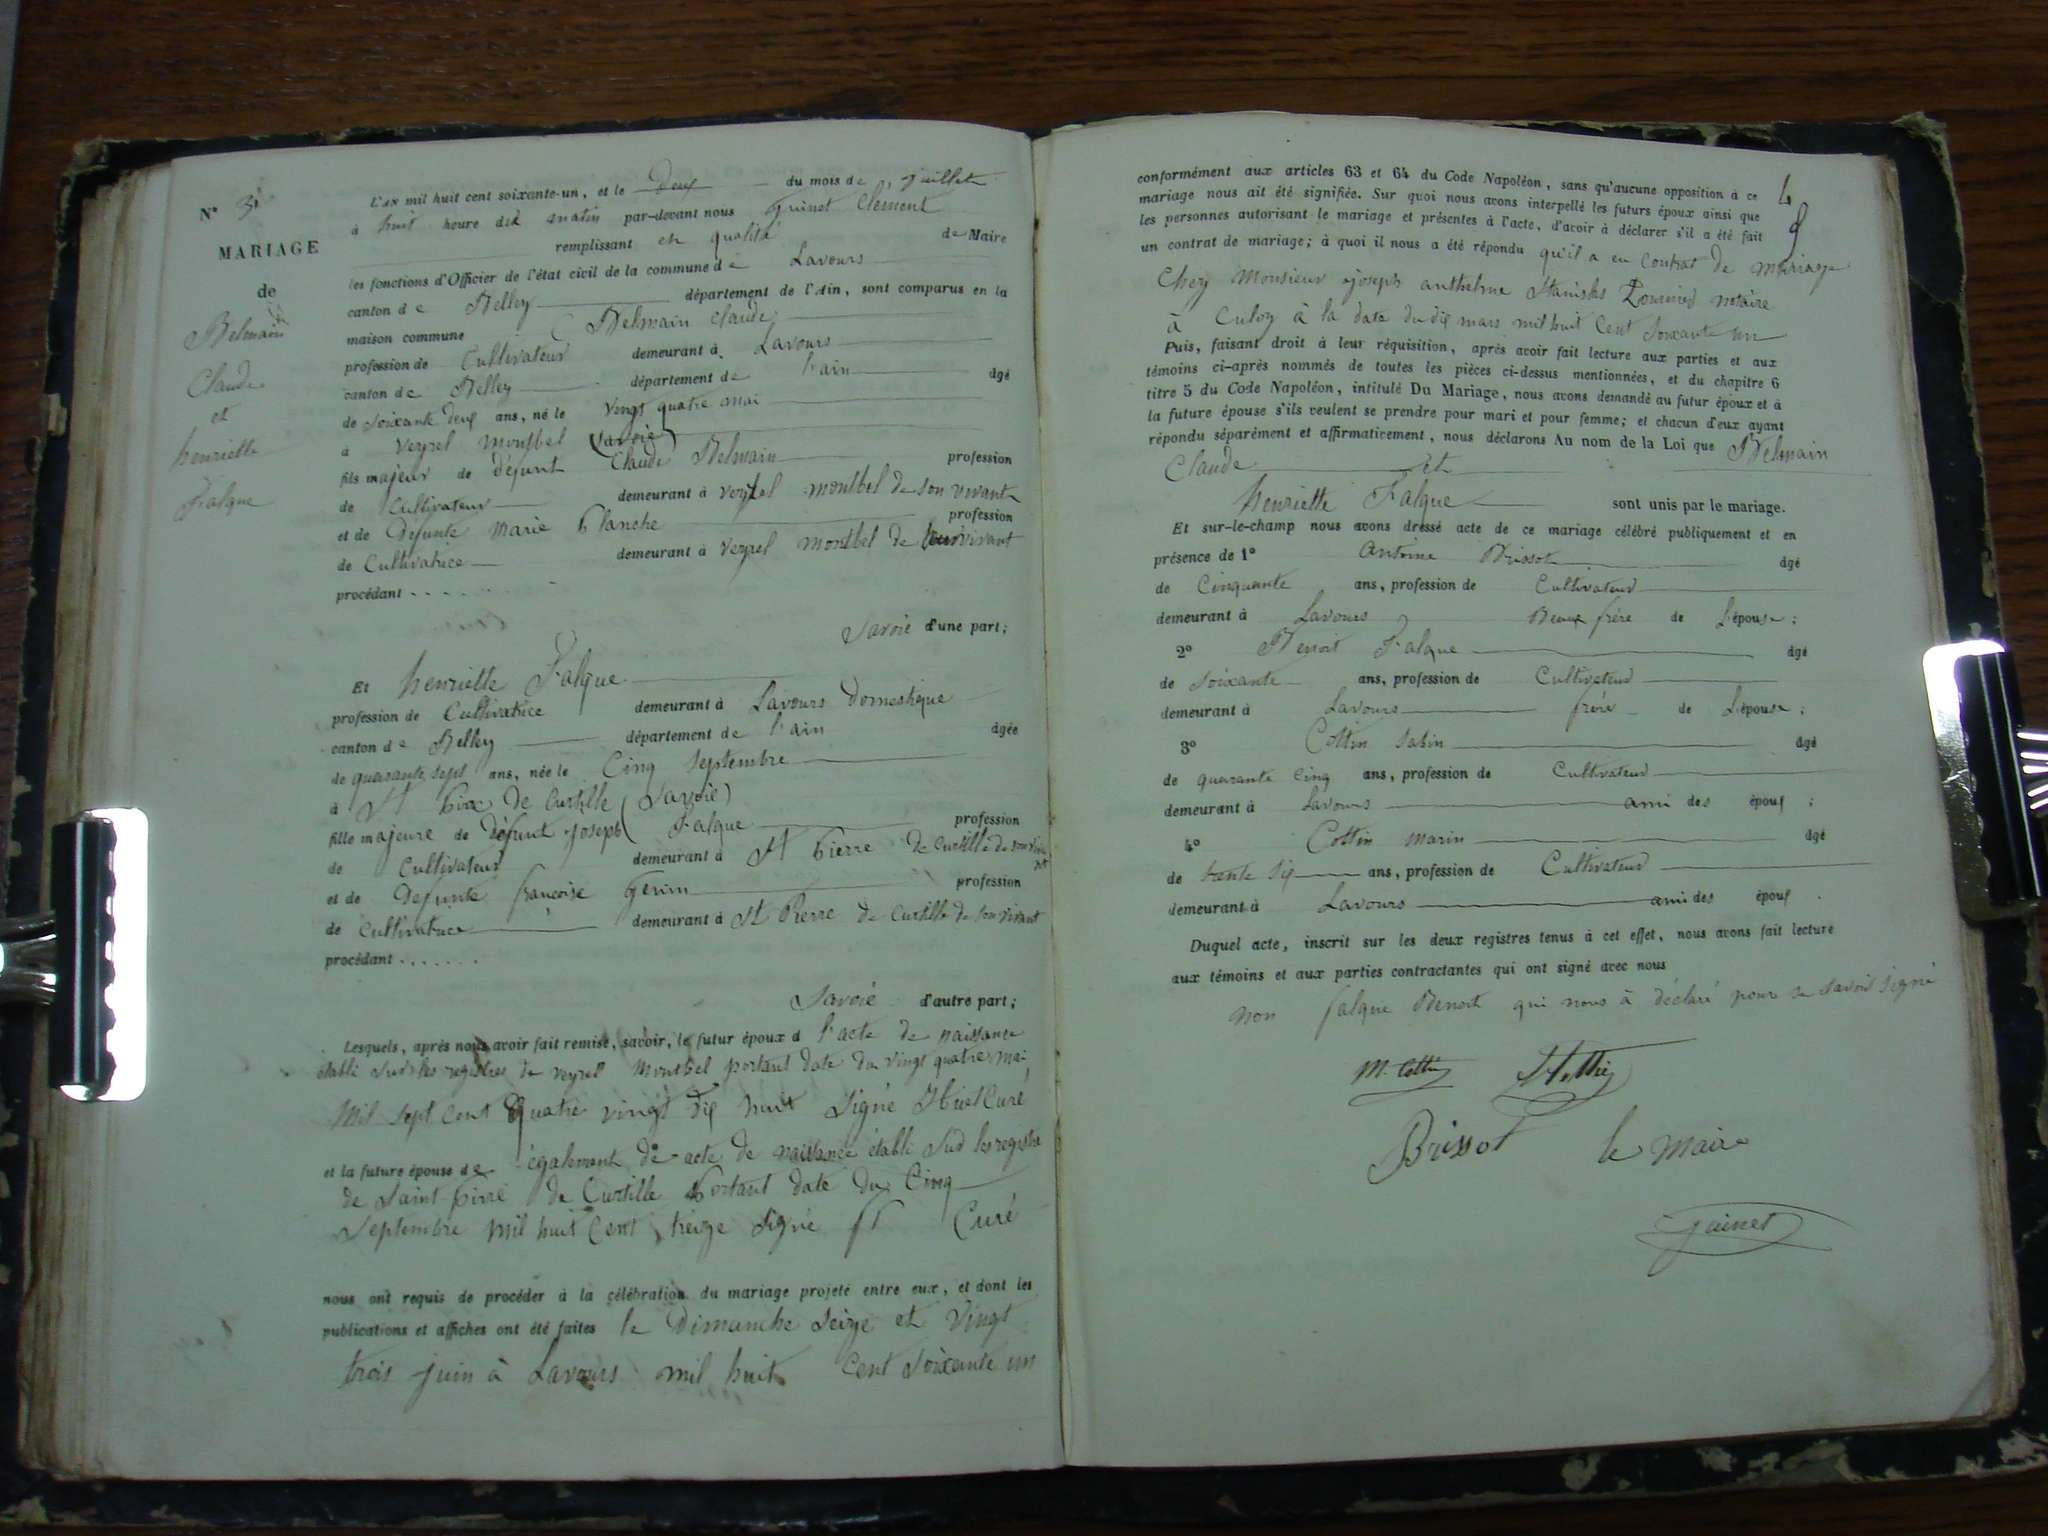 N° 3
MARIAGE
de
Belmain
Claude
et
henriette
Falque
L'AN mil huit cent soixante-un, et le Deux du mois de juillet
à huit heure du matin par-devant nous Guinet Clément
remplissant en qualité de Maire
les fonctions d'Officier de l'état civil de la commune de Lavours
canton de Belley département de l'Ain, sont comparus en la
maison commune Belmain Claude
profession de Cultivateur demeurant à Lavours
canton de Belley département de l'ain âgé
de soixante deux ans, né le vingt quatre mai
à Veyrel montbel (Savoie)
fils majeur de défunt Claude Belmain profession
de Cultivateur demeurant à veyrel montbel de son vivant
et de Défunte Marie Blanche profession
de Cultivatrice demeurant à veyrel montbel de vivant
procédant . . . . . . .
Savoie d'une part;
Et henriette Falque
profession de Cultivatrice demeurant à Lavours Domestique
canton de Belley département de l'ain âgée
de quarante sept ans, née le Cinq Septembre
à St de Curtille (Savoie)
fille majeure de défunt joseph Falque profession
de Cultivateur demeurant à St Pierre de Curtille de son
et de Défunte françoise profession
de Cultivatrice demeurant à St Pierre de Curtille de son vivant
procédant . . . . . . .
Savoie d'autre part;
Lesquels, après nous avoir fait remise, savoir, le futur époux d l'acte de naissance
établi sur les registres de veyrel Montbel portant date du vingt quatre mai
Mil sept cent quatre vingt dix huit Signé Curé
et la future épouse de également de acte de naissance établi sur les registre
de Saint Pirre de Curtille Portant date du Cinq
Septembre mil huit Cent treize Signé Curé
nous ont requis de procéder à la célébration du mariage projeté entre eux, et dont les
publications et affiches ont été faites le Dimanche Seize et Vingt
trois juin à Lavours mil huit Cent Soixante un
conformément aux articles 63 et 64 du Code Napoléon, sans qu'aucune opposition à ce
mariage nous ait été signifiée. Sur quoi nous avons interpellé les futurs époux ainsi que
les personnes autorisant le mariage et présentes à l'acte, d'avoir à déclarer s'il a été fait
un contrat de mariage; à quoi il nous a été répondu qu'il a eu Contrat de mariage
Chez Monsieur joseph anthelme Stanislas notaire
à Culoz à la date du dix mars mil huit Cent Soixante un
Puis, faisant droit à leur réquisition, après avoir fait lecture aux parties et aux
témoins ci-après nommés de toutes les pièces ci-dessus mentionnées, et du chapitre 6
titre 5 du Code Napoléon, intitulé Du Mariage, nous avons demandé au futur époux et à
la future épouse s'ils veulent se prendre pour mari et pour femme; et chacun d'eux ayant
répondu séparément et affirmativement, nous déclarons Au nom de la Loi que Belmain
Claude et
henriette Falque sont unis par le mariage.
Et sur-le-champ nous avons dressé acte de ce mariage célébré publiquement et en
présence de 1° Antoine Brissot âgé
de Cinquante ans, profession de Cultivateur
demeurant à Lavours Beau frére de L'épouse;
2° Benoit Falque âgé
de Soixante ans, profession de Cultivateur
demeurant à Lavours frére de L'épouse;
3° Cottin Sabin âgé
de quarante Cinq ans, profession de Cultivateur
demeurant à Lavours ami des époux;
4° Cottin Marin âgé
de trente six ans, profession de Cultivateur
demeurant à Lavours ami des époux.
Duquel acte, inscrit sur les deux registres tenus à cet effet, nous avons fait lecture
aux témoins et aux parties contractantes qui ont signé avec nous
non falque Benoit qui nous à déclaré savoir signé
M. Cottin
Brissot le Maire
Guinet